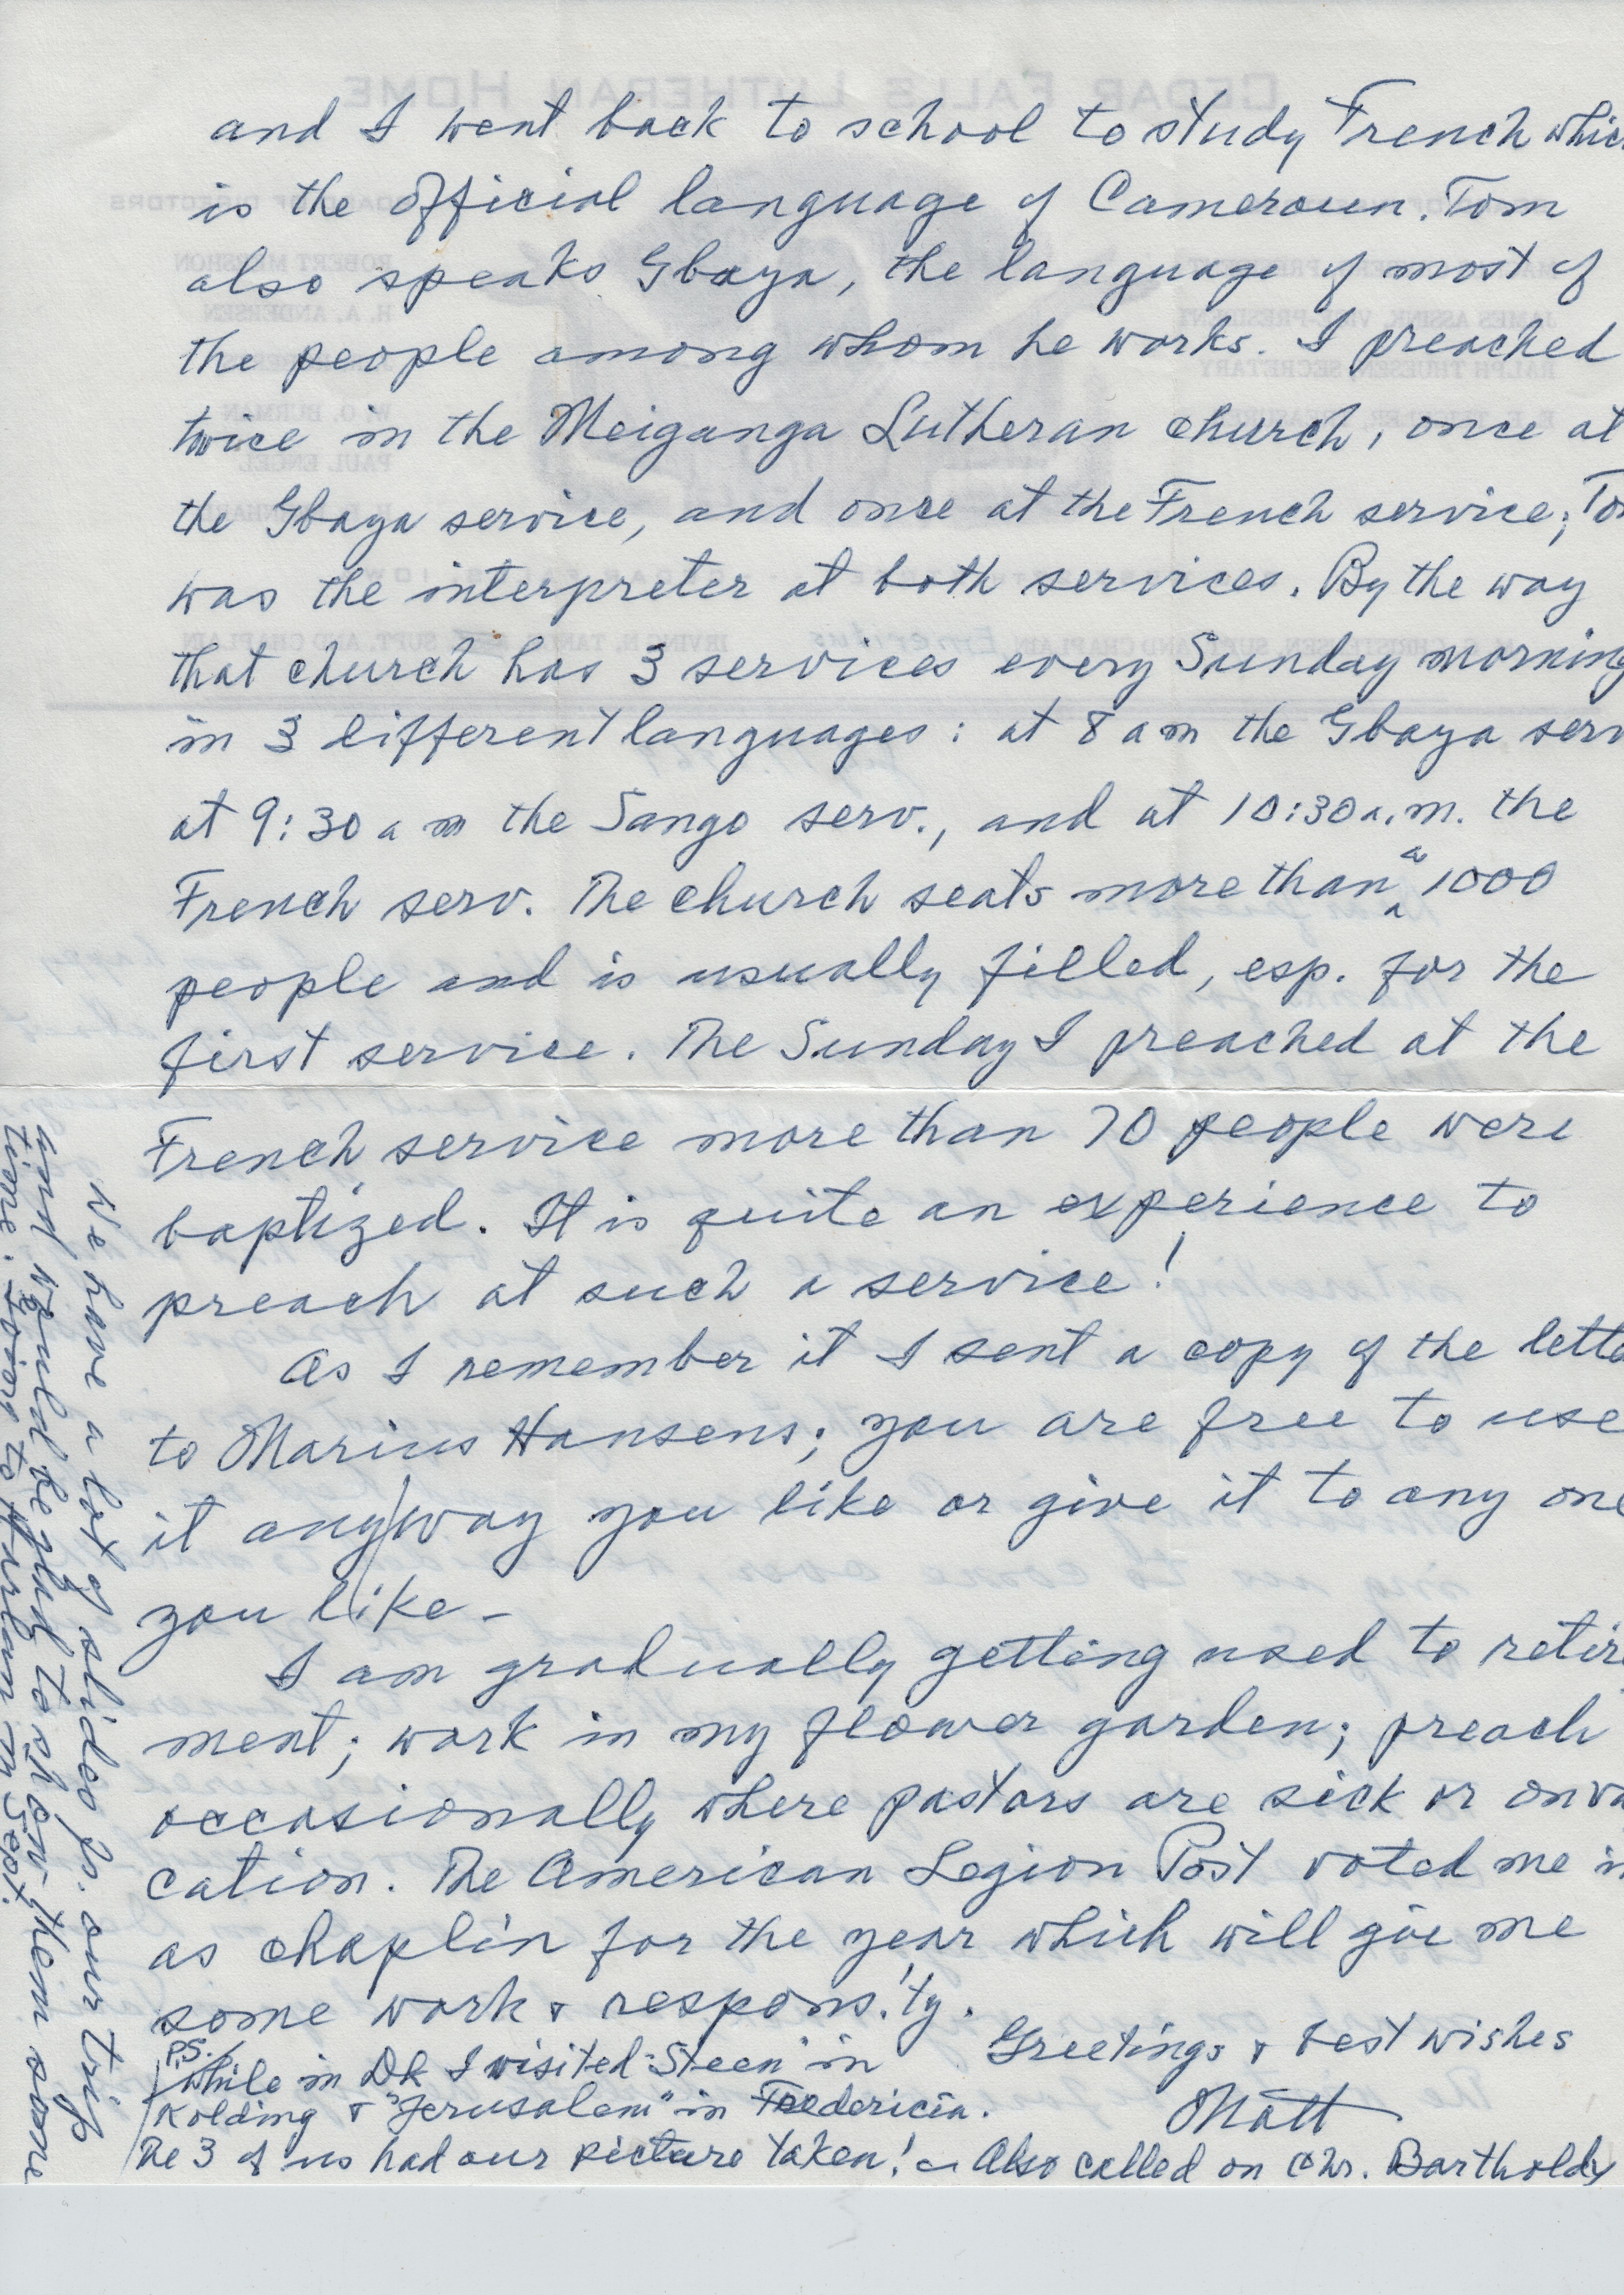 and I went back to school to study French whic
is the official language of Cameroun. Tom
also speaks Gbaya, the language of most of
the people among whom he works. I preached
twice in the Meiganga Lutheran church, once at
the Gbaya service, and once at the French service; To
was the interpreter at both services. By the way
that church has 3 services every Sunday morning
in 3 different languages: at 8 am the Gbaya serv
at 9:30 am the Sango serv., and at 10:30 a.m. the
French serv. The church seats more than a 1000
people and is usually filled, esp. for the
first service. The Sunday I preached at the
French service more than 70 people were
baptized. It is quite an experience to
preach at such a service!
As I remember it I sent a copy of the lette
to Marius Hansens; you are free to use
it any/way you like or give it to any one
you like -
I am gradually getting used to retire
ment; work in my flower garden; preach
occasionally where pastors are sick or on va
cation. The American Legion Post voted me in
as chaplin for the year which will give me
some work & respons.'ty.
Greetings & best wishes
Matt
P.S.
While in DK I visited "Steen" in
Kolding & "Jerusalem" in Fredericia.
The 3 of us had our picture taken! - Also called on Chr. Bartholdy
We have a lot of slides fr. our trip
and would be glad to show them some
time. Going to Hurlum in Sept.
CEDAR FALLS LUTHERAN HOME
BOARD OF DIRECTORS
ROBERT MERSHON
H. A. ANDERSEN
W. O. BURMAN
PAUL ENGEL
JAMES ASSINK, VICE-PRESIDENT
RALPH THUESEN, SECRETARY
SUPT. AND CHAPLAIN Emeritus
SUPT. AND CHAPLAIN